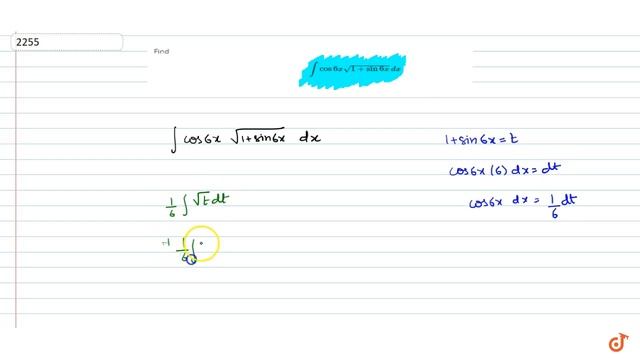 2255
Find
∫ cos 6x √(1 + sin 6x) dx
∫ cos6x √(1+sin6x) dx
1+sin6x = t
cos6x (6) dx = dt
cos6x dx = 1/6 dt
1/6 ∫ √t dt
1/6 ∫